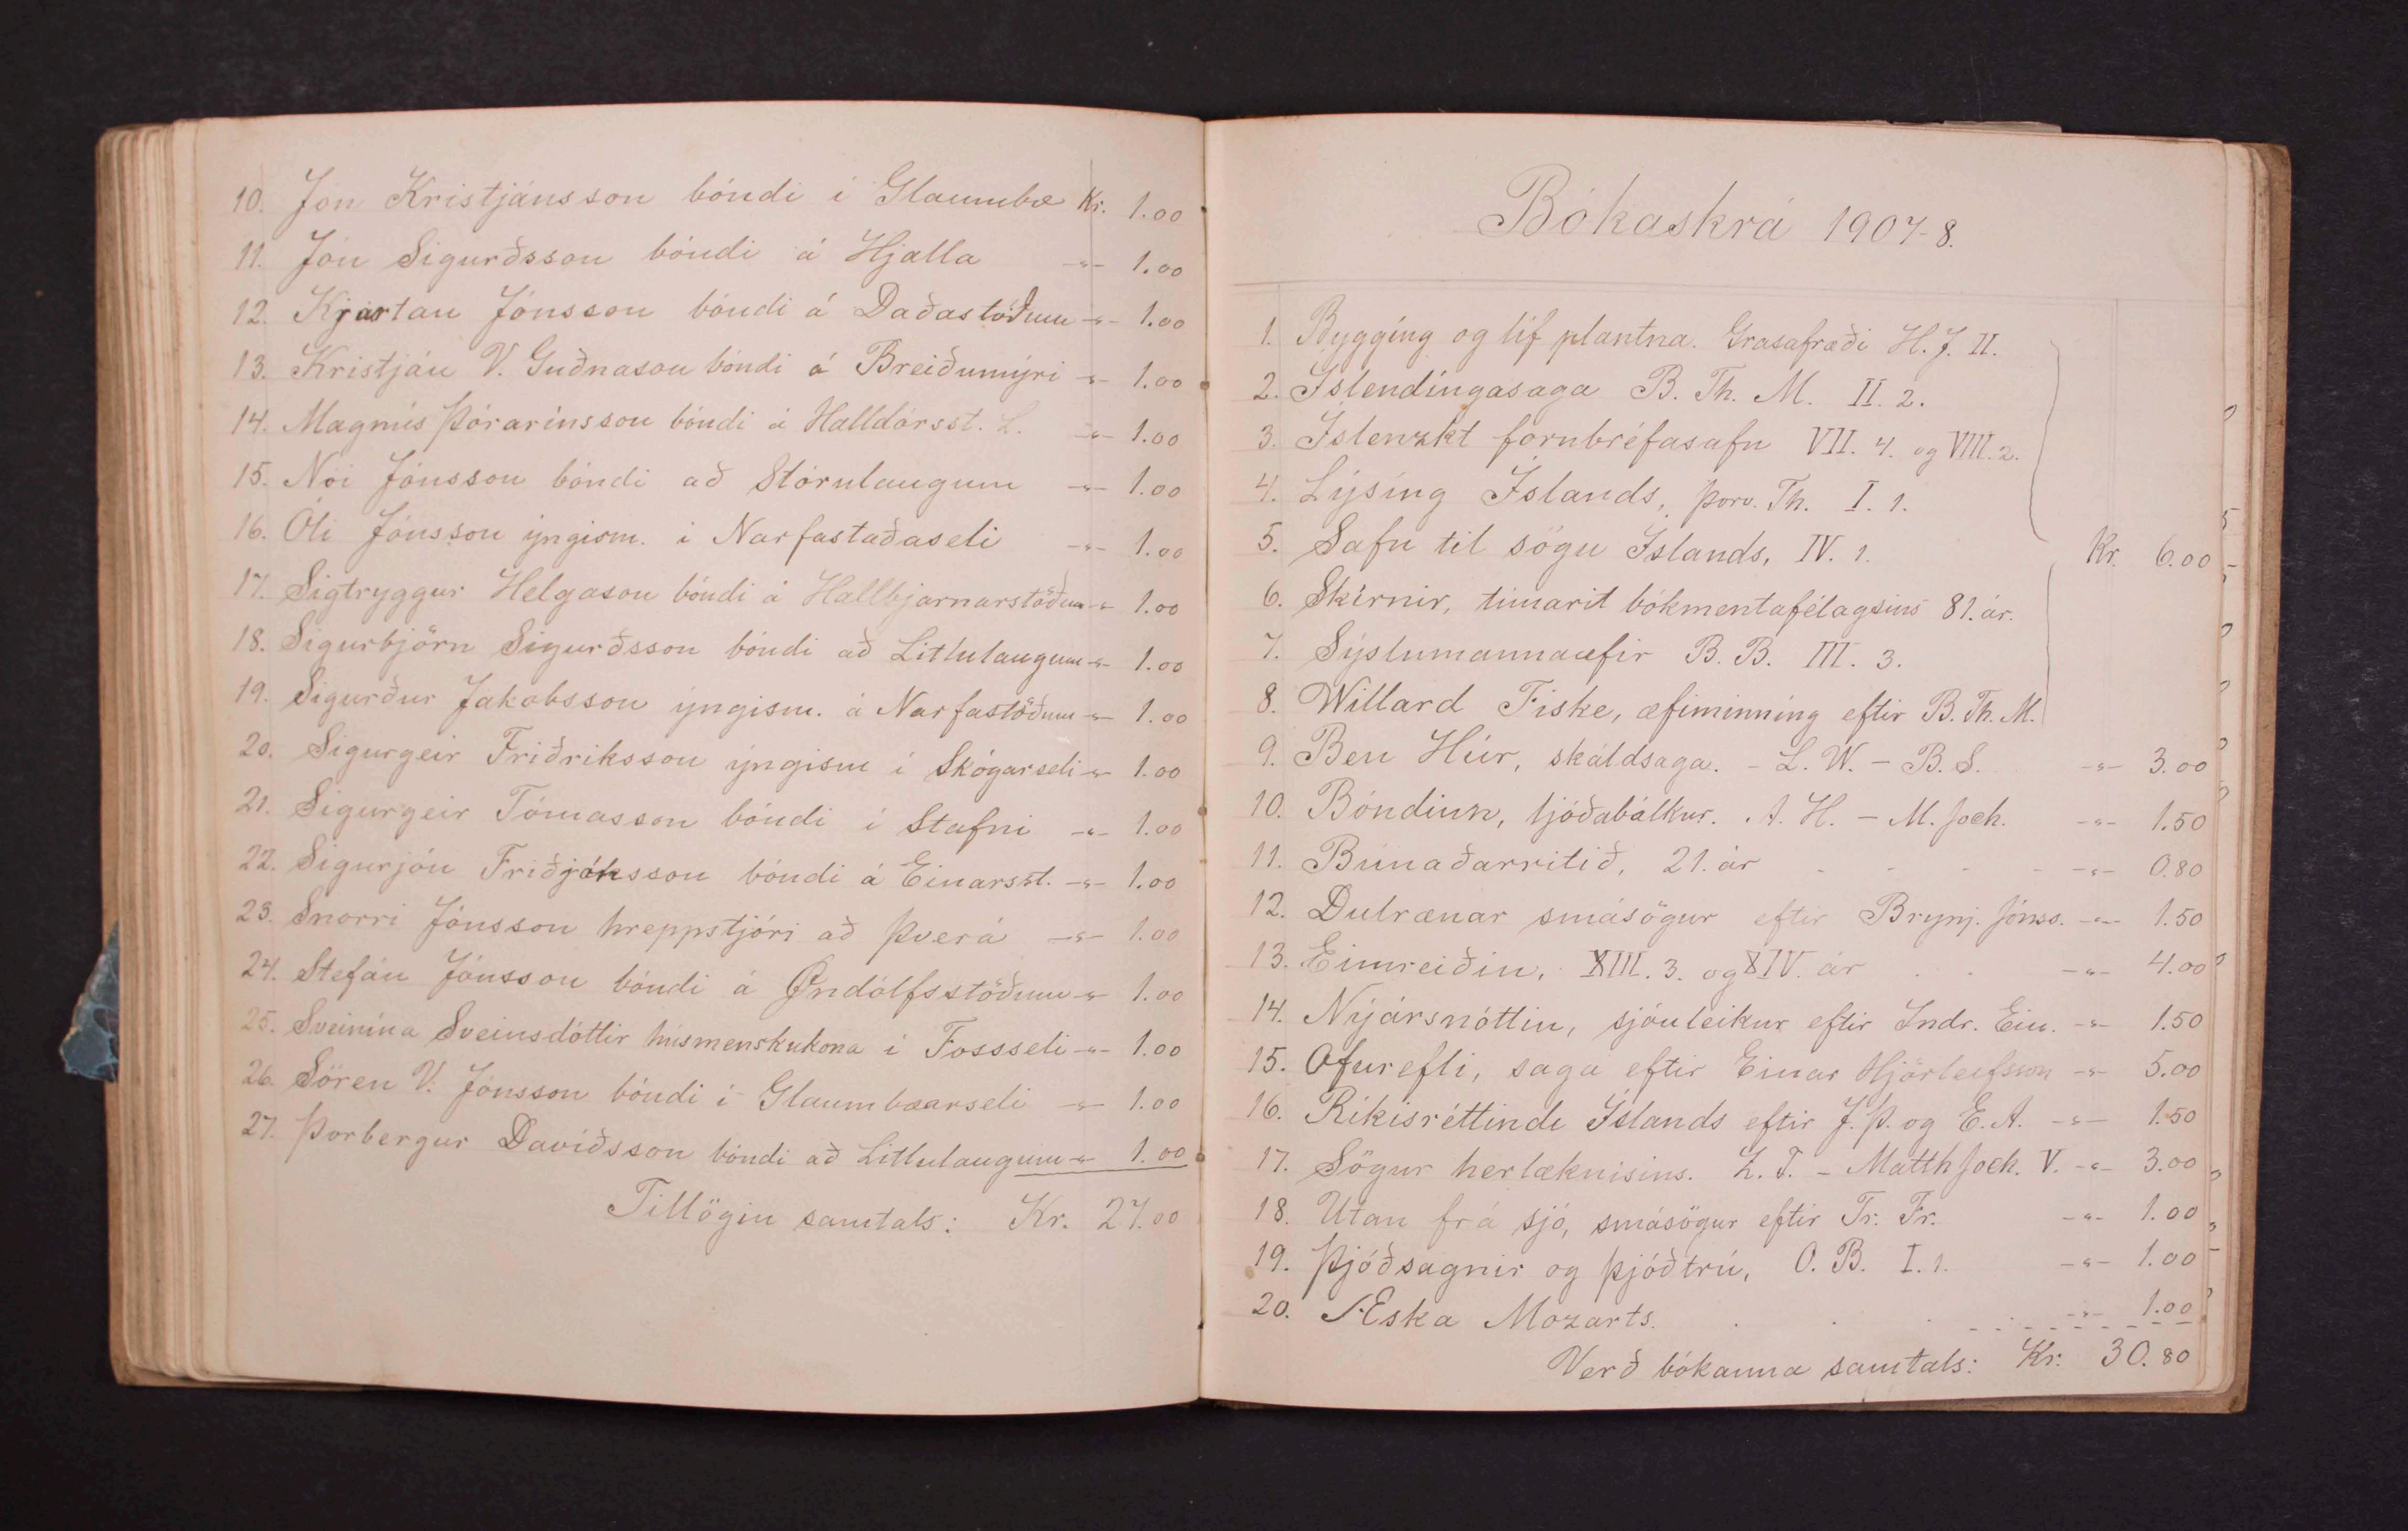 10. Jón Kristjánsson bóndi í Glaumbæ Kr. 1.00
11. Jón Sigurðsson bóndi á Hjalla -"- 1.00
12. Kjartan Jónsson bóndi á Daðastöðum -"- 1.00
13. Kristján V. Guðnason bóndi á Breiðumýri -"- 1.00
14. Magnús Þórarinsson bóndi á Halldórsst. L. -"- 1.00
15. Nói Jónsson bóndi að Stórulaugum -"- 1.00
16. Óli Jónsson yngism. í Narfastaðaseli -"- 1.00
17. Sigtryggur Helgason bóndi á Hallbjarnarstöðum -"- 1.00
18. Sigurbjörn Sigurðsson bóndi að Litlulaugum -"- 1.00
19. Sigurður Jakobsson yngism. á Narfastöðum -"- 1.00
20. Sigurgeir Friðriksson yngism í Skógarseli -"- 1.00
21. Sigurgeir Tómasson bóndi í Stafni -"- 1.00
22. Sigurjón Friðjónsson bóndi á Einarsst. -"- 1.00
23. Snorri Jónsson hreppstjóri að Þverá -"- 1.00
24. Stefán Jónsson bóndi á Öndólfsstöðum -"- 1.00
25. Sveinína Sveinsdóttir húsmenskukona í Fossseli -"- 1.00
26. Sören V. Jónsson bóndi í Glaumbæarseli -"- 1.00
27. Þorbergur Davíðsson bóndi að Litlulaugum -"- 1.00
Tillögin samtals: Kr. 27.00
Bókaskrá 1907-8.
1. Bygging og líf plantna. Grasafræði H. J. II.
2. Íslendingasaga B. Th. M. II. 2.
3. Íslenzkt fornbréfasafn VII. 4. og VIII. 2.
4. Lýsing Íslands, Þorv. Th. I. 1.
5. Safn til sögu Íslands, IV. 1. Kr. 6.00
6. Skírnir, tímarit bókmentafélagsins 81. ár.
7. Sýslumannaæfir B. B. III. 3.
8. Willard Fiske, æfiminning eftir B. Th. M.
9. Ben Húr, skáldsaga. - L. W. - B. S. -"- 3.00
10. Bóndinn, ljóðabálkur. A. H. - M. Joch. -"- 1.50
11. Búnaðarritið, 21. ár -"- 0.80
12. Dulrænar smásögur eftir Brynj. Jónss. -"- 1.50
13. Eimreiðin, XIII. 3. og XIV. ár -"- 4.00
14. Nýjársnóttin, sjónleikur eftir Indr. Ein. -"- 1.50
15. Ofurefli, saga eftir Einar Hjörleifsson -"- 5.00
16. Ríkisréttindi Íslands eftir J. Þ. og E. A. -"- 1.50
17. Sögur herlæknisins. Z. T. - Matth Joch. V. -"- 3.00
18. Utan frá sjó, smásögur eftir Tr. Fr. -"- 1.00
19. Þjóðsagnir og þjóðtrú, O. B. I. 1. -"- 1.00
20. Æska Mozarts. -"- 1.00
Verð bókanna samtals: Kr. 30.80